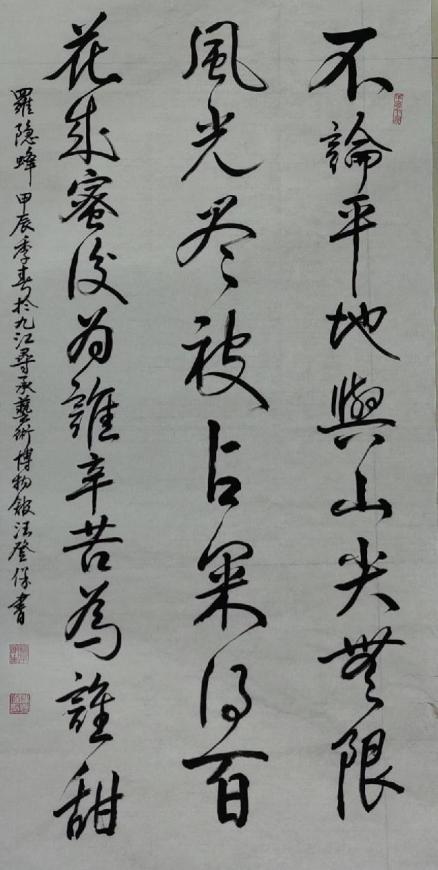 不論平地與山尖無限
風光尽被占采得百
花成蜜後为誰辛苦為誰甜
羅隐蜂 甲辰季春於九江尋承藝術博物館汪登保書